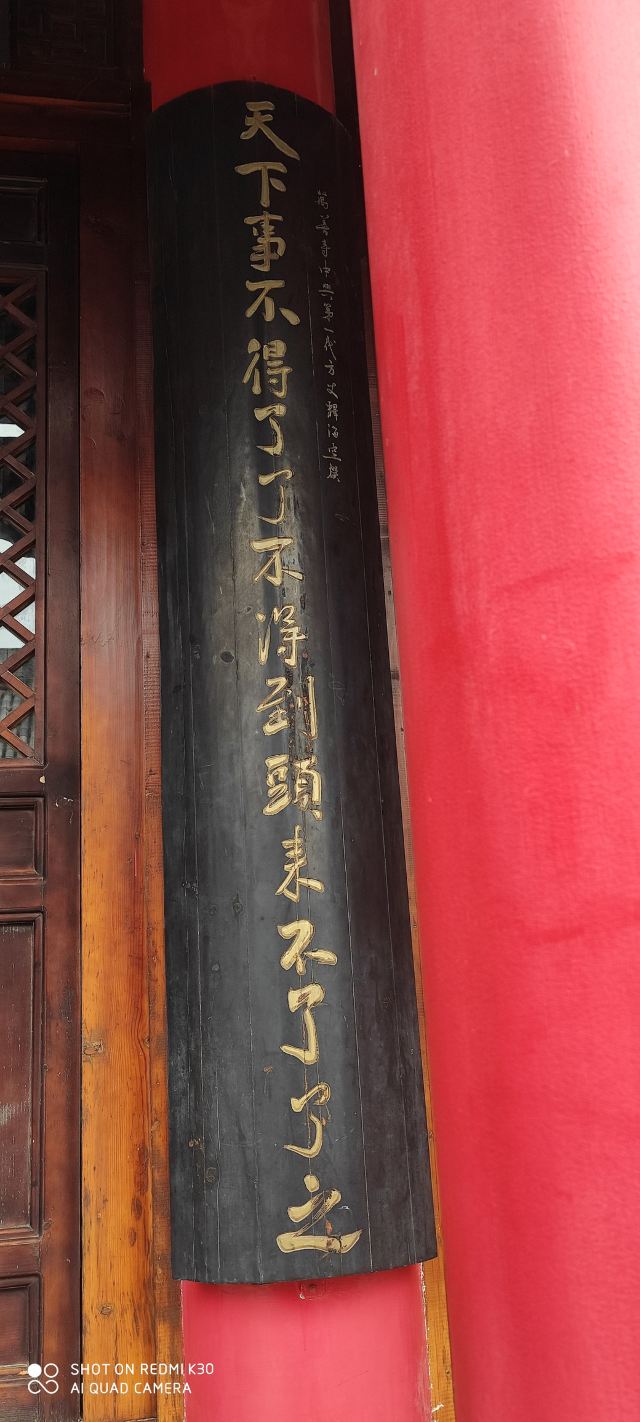 萬善寺中興第一代方丈釋海空撰
天下事不得了了不得到頭來不了了之
SHOT ON REDMI K30
AI QUAD CAMERA